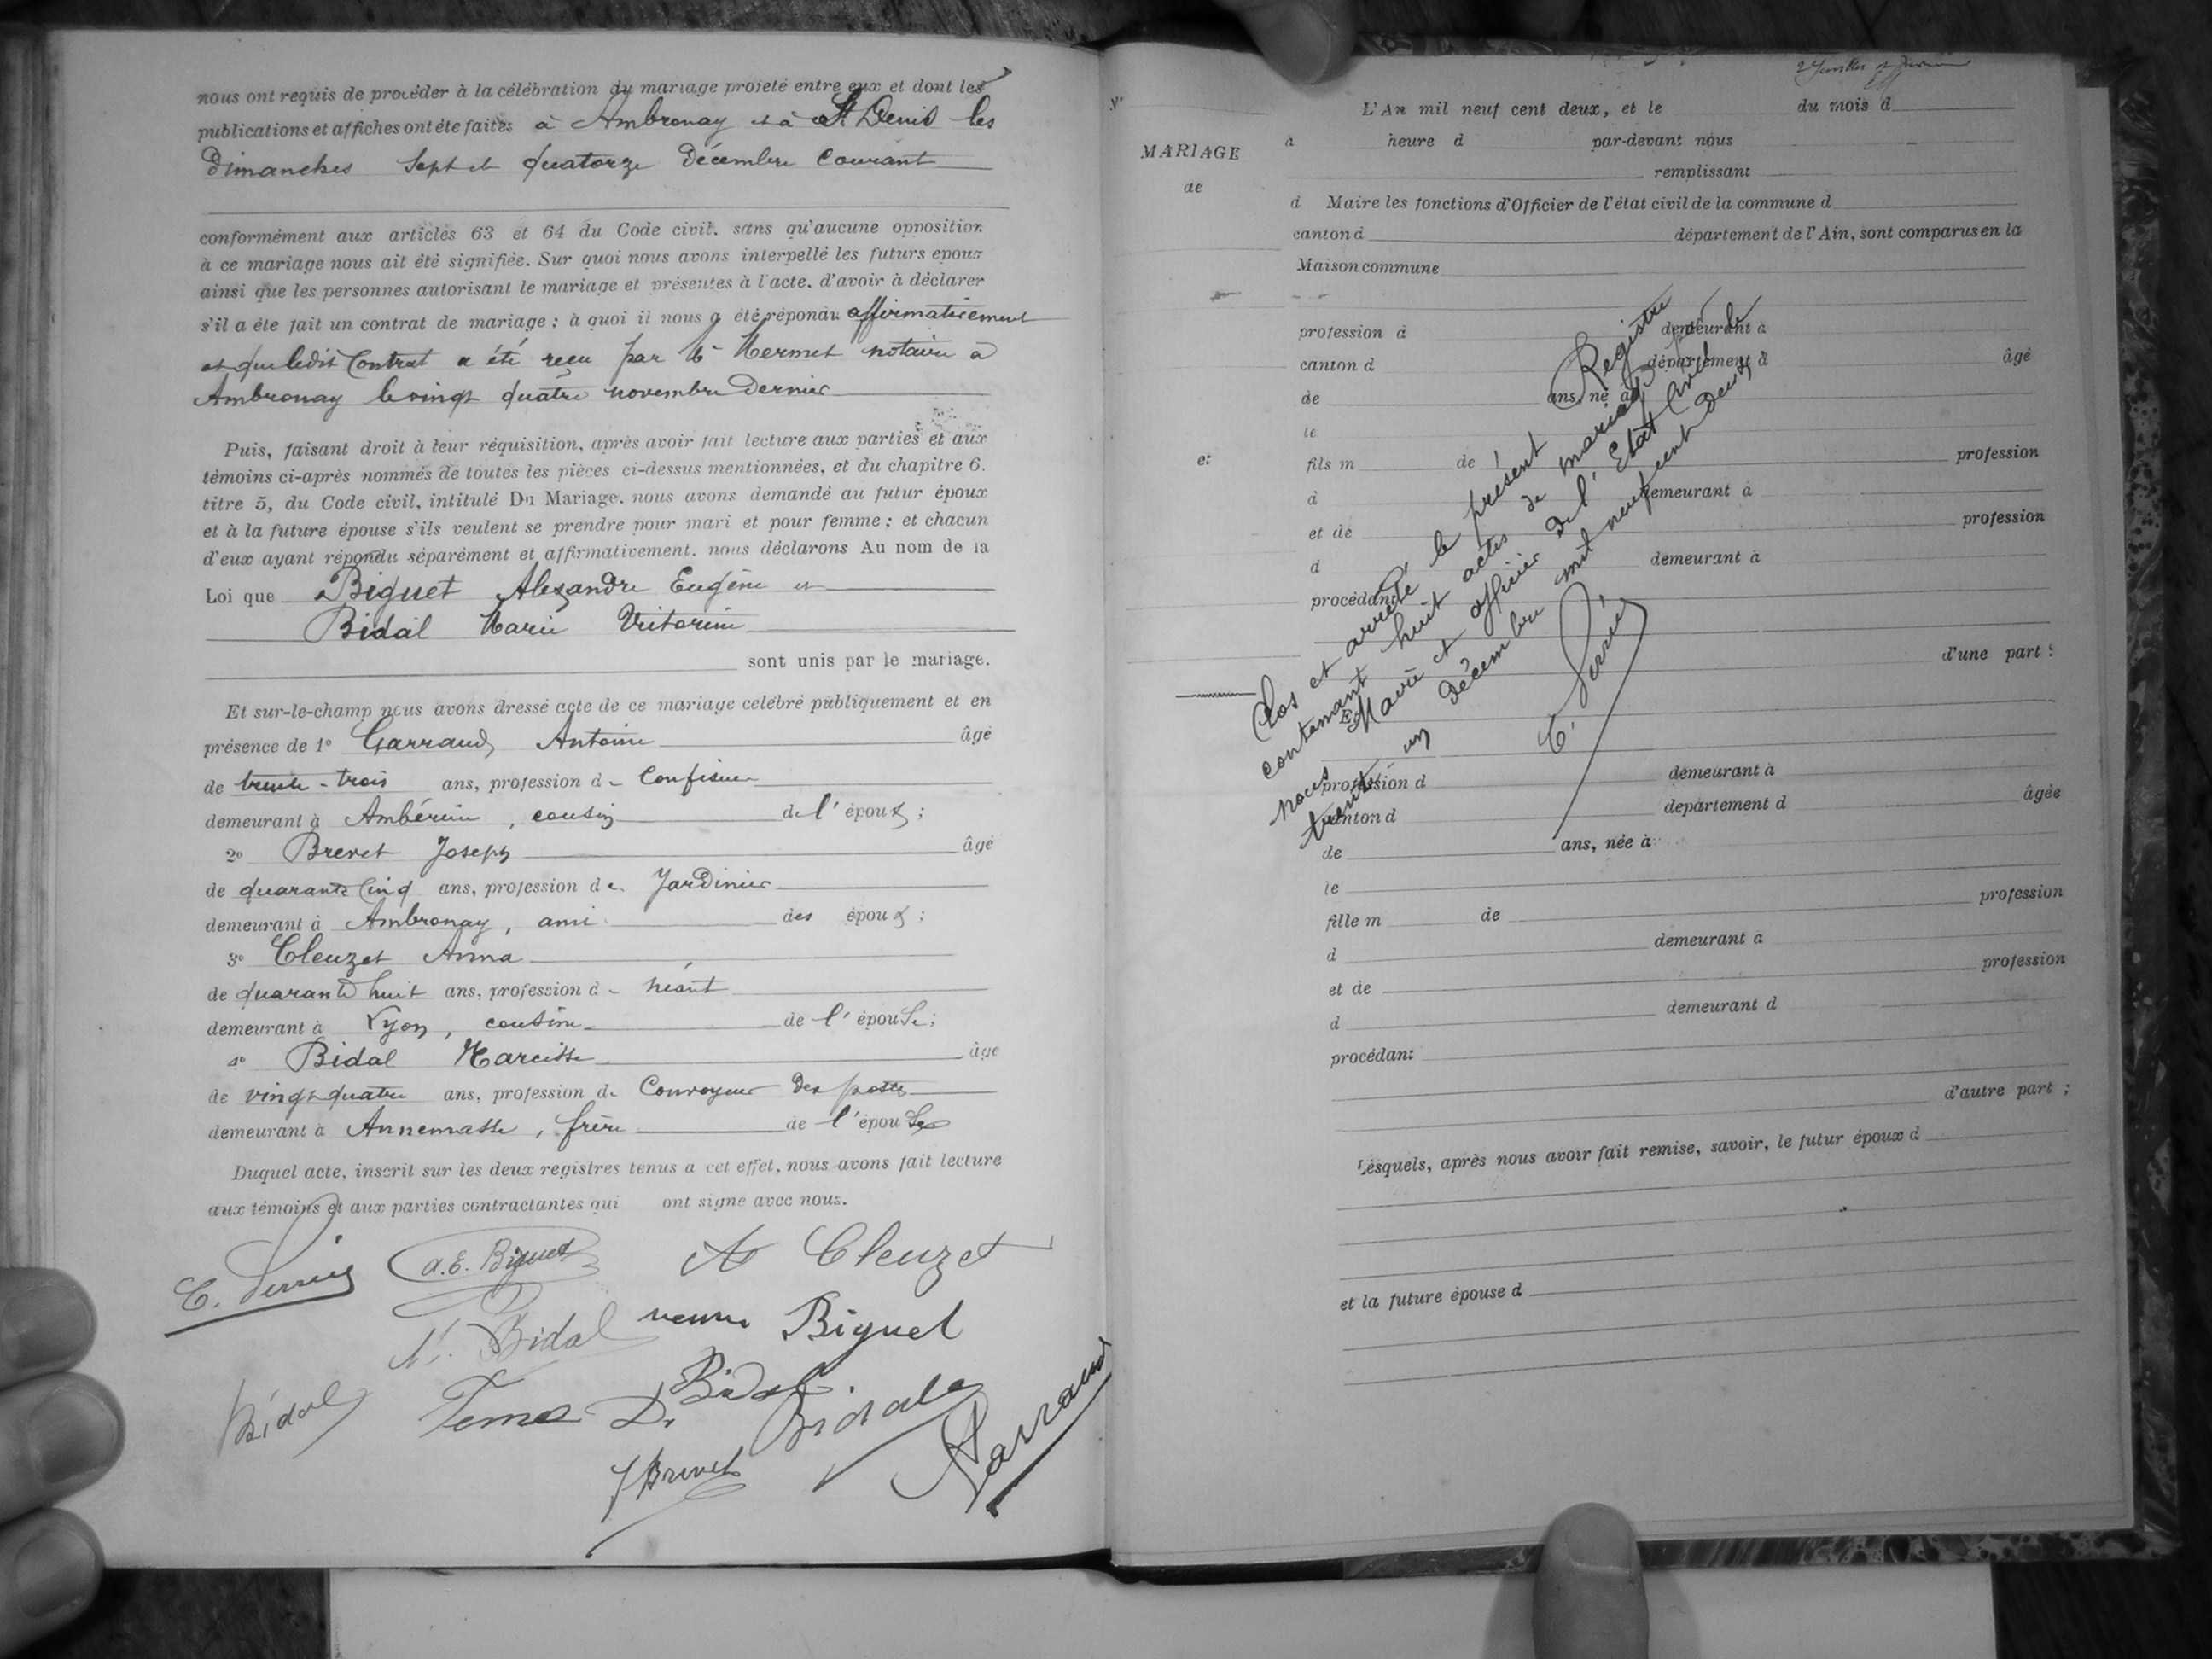 nous ont requis de procéder à la célébration du mariage projeté entre eux et dont les
publications et affiches ont été faites à Ambronay et à St Denis les
Dimanches Sept et quatorze Décembre Courant
conformément aux articles 63 et 64 du Code civil. sans qu'aucune opposition
à ce mariage nous ait été signifiée. Sur quoi nous avons interpellé les futurs époux
ainsi que les personnes autorisant le mariage et présentes à l'acte. d'avoir à déclarer
s'il a été fait un contrat de mariage ; à quoi il nous a été répondu affirmativement
et que ledit Contrat a été reçu par Me Mermet notaire à
Ambronay le vingt quatre novembre Dernier
Puis, faisant droit à leur réquisition, après avoir fait lecture aux parties et aux
témoins ci-après nommés de toutes les pièces ci-dessus mentionnées, et du chapitre 6.
titre 5, du Code civil, intitulé Du Mariage. nous avons demandé au futur époux
et à la future épouse s'ils veulent se prendre pour mari et pour femme ; et chacun
d'eux ayant répondu séparément et affirmativement. nous déclarons Au nom de la
Loi que Biguet Alexandre Eugène et
Bidal Marie Victorine
sont unis par le mariage.
Et sur-le-champ nous avons dressé acte de ce mariage célébré publiquement et en
présence de 1° Garraud Antoine âgé
de trente-trois ans, profession d Confiseur
demeurant à Ambérieu, cousin de l'époux ;
2° Brevet Joseph âgé
de quarante Cinq ans, profession de Jardinier
demeurant à Ambronay, ami des époux ;
3° Cleuzet Anna
de quarante huit ans, profession d néant
demeurant à Lyon, cousine de l'épouse ;
4° Bidal Narcisse âgé
de vingt quatre ans, profession de Convoyeur des postes
demeurant à Annemasse, frère de l'épouse
Duquel acte, inscrit sur les deux registres tenus à cet effet, nous avons fait lecture
aux témoins et aux parties contractantes qui ont signé avec nous.
A. E. Biguet A Cleuzet
N. Bidal veuve Biguet
Bidal Bidal Bidal
J Brevet Garraud
N°
MARIAGE
de
et
L'An mil neuf cent deux, et le du mois d
à heure d par-devant nous
remplissant
d Maire les fonctions d'Officier de l'état civil de la commune d
canton d département de l'Ain, sont comparus en la
Maison commune
profession d demeurant à
canton d département d âgé
de ans, né à
le
fils m de profession
d demeurant à
et de profession
d demeurant à
procédant
d'une part :
Et
profession d demeurant à
canton d département d âgée
de ans, née à
le
fille m de profession
d demeurant à
et de profession
d demeurant d
procédant
d'autre part ;
Lesquels, après nous avoir fait remise, savoir, le futur époux d
et la future épouse d
Clos et arrêté le présent Registre
contenant huit actes de mariage par
nous Maire et officier de l'Etat Civil le
trente un Décembre mil neuf cent deux